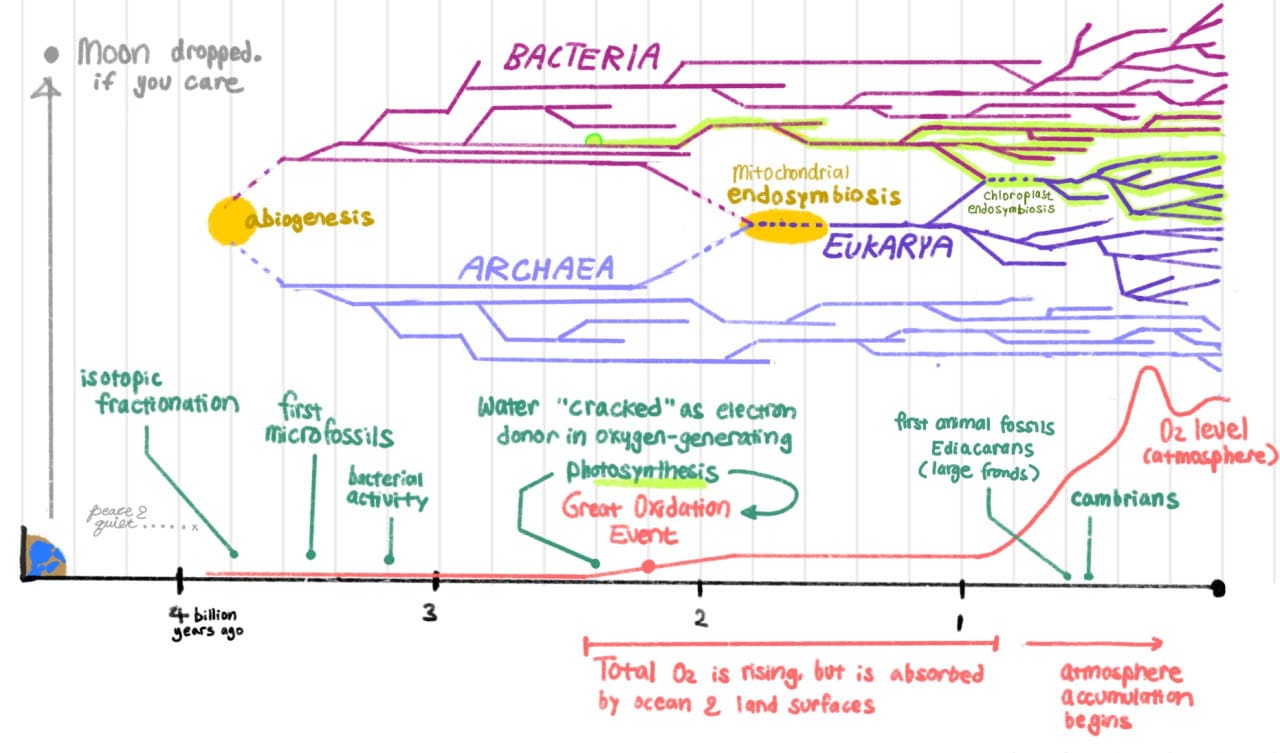 Moon dropped.
if you care
BACTERIA
abiogenesis
Mitochondrial
endosymbiosis
chloroplast
endosymbiosis
EUKARYA
ARCHAEA
isotopic
fractionation
first
microfossils
bacterial
activity
Water "cracked" as electron
donor in oxygen-generating
photosynthesis
Great Oxidation
Event
first animal fossils
Ediacarans
(large fronds)
cambrians
O2 level
(atmosphere)
peace &
quiet......x
4 billion
years ago
3
2
1
Total O2 is rising, but is absorbed
by ocean & land surfaces
atmosphere
accumulation
begins